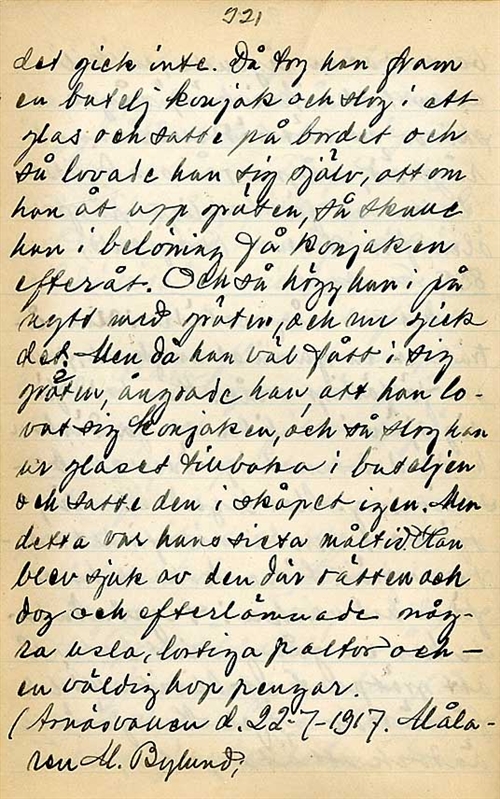 921
det gick inte. Då tog han fram
en butelj konjak och slog i ett
glas och satte på bordet och
så lovade han sig själv, att om
han åt upp gröten, så skulle
han i belöning få konjaken
efteråt. Och så högg han i på
nytt med gröten, och nu gick
det. Men då han väl fått i sig
gröten, ångrade han att han lo-
vat sig konjaken, och så slog han
ur glaset tillbaka i buteljen
och satte den i skåpet igen. Men
detta var hans sista måltid. Han
blev sjuk av den där rätten och
dog och efterlämnade någ-
ra usla, lortiga paltor och —
en väldig hop pengar.
(Arnäsvallen d. 22-7-1917. Måla-
ren M. Bylund,